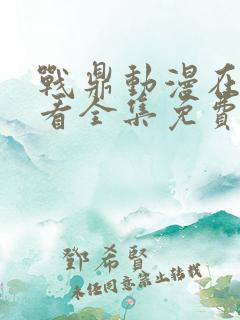 戰鼎動漫在
看全集免費
鄧希賢
未经同意禁止转载